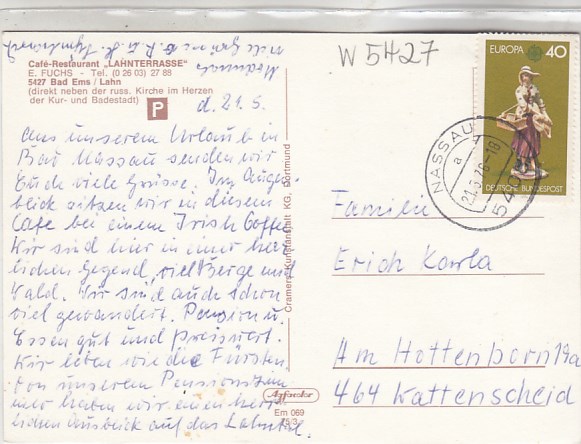 Café-Restaurant „LAHNTERRASSE"
E. FUCHS - Tel. (0 26 03) 27 88
5427 Bad Ems / Lahn
(direkt neben der russ. Kirche im Herzen
der Kur- und Badestadt)
P
d. 21.5.
Aus unserem Urlaub in
Bad Nassau senden wir
Euch viele Grüsse. Im Augen-
blick sitzen wir in diesem
Cafe bei einem Irish Coffee
Wir sind hier in einer herr
lichen Gegend, viel Berge und
Wald. Wir sind auch schon
viel gewandert. Pension u.
Essen gut und preiswert.
Wir leben wie die Fürsten
Von unserem Pensionszim
mer haben wir einen herr
lichen Ausblick auf das Lahntal.
Nochmals
viele Grüsse
Cramers Kunstanstalt KG, Dortmund
Agfacolor
Em 069
75/3
W 5427
EUROPA 40
DEUTSCHE BUNDESPOST
NASSAU
a
54
Familie
Erich Korla
Am Hottenborn 19a
464 Wattenscheid